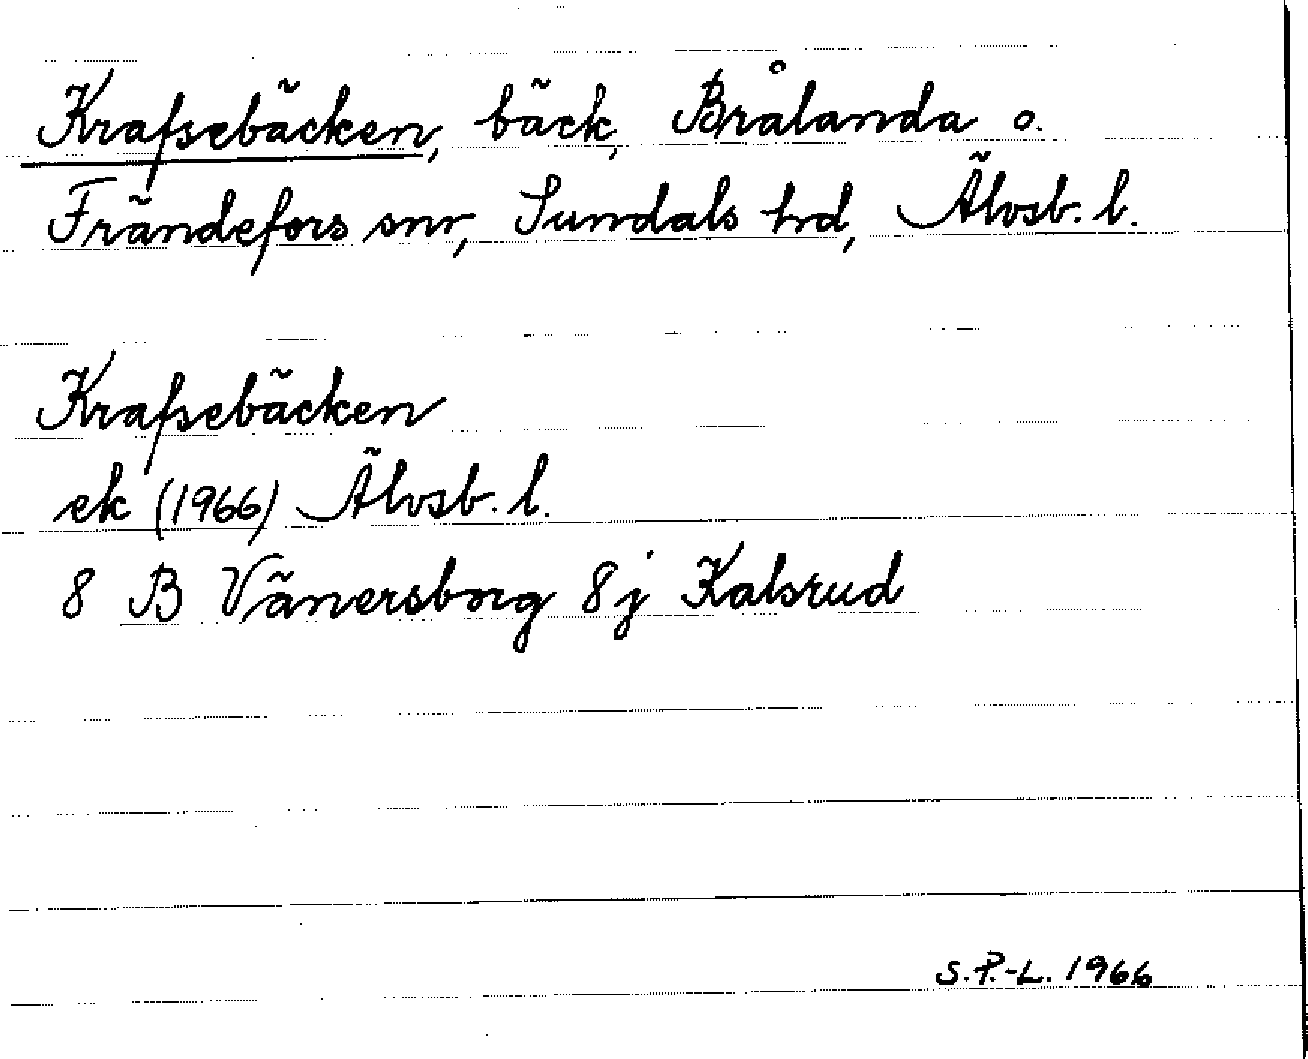 Krafsebäcken, bäck, Brålanda o.
Frändefors snr, Sundals hd, Älvsb. l.
Krafsebäcken
ek (1966) Älvsb. l.
8 B Vänersborg 8j Kalsrud
S.P.-L. 1966